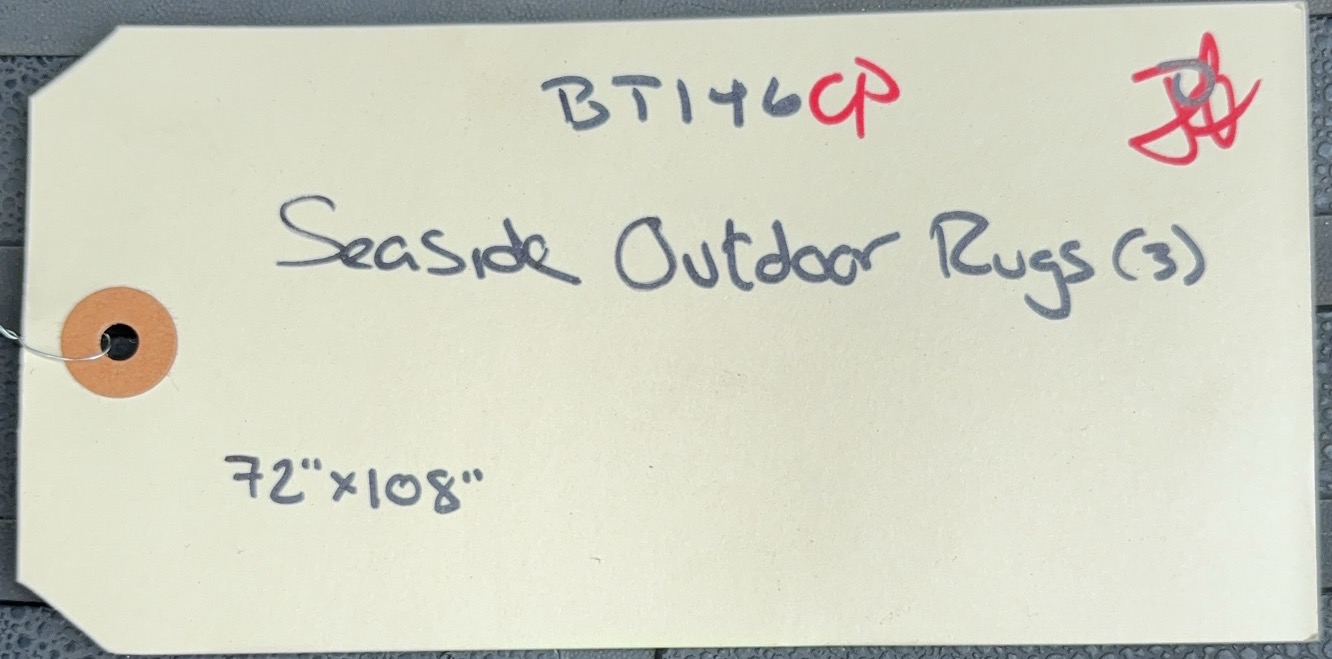 BT146CP
Seaside Outdoor Rugs (3)
72"x108"